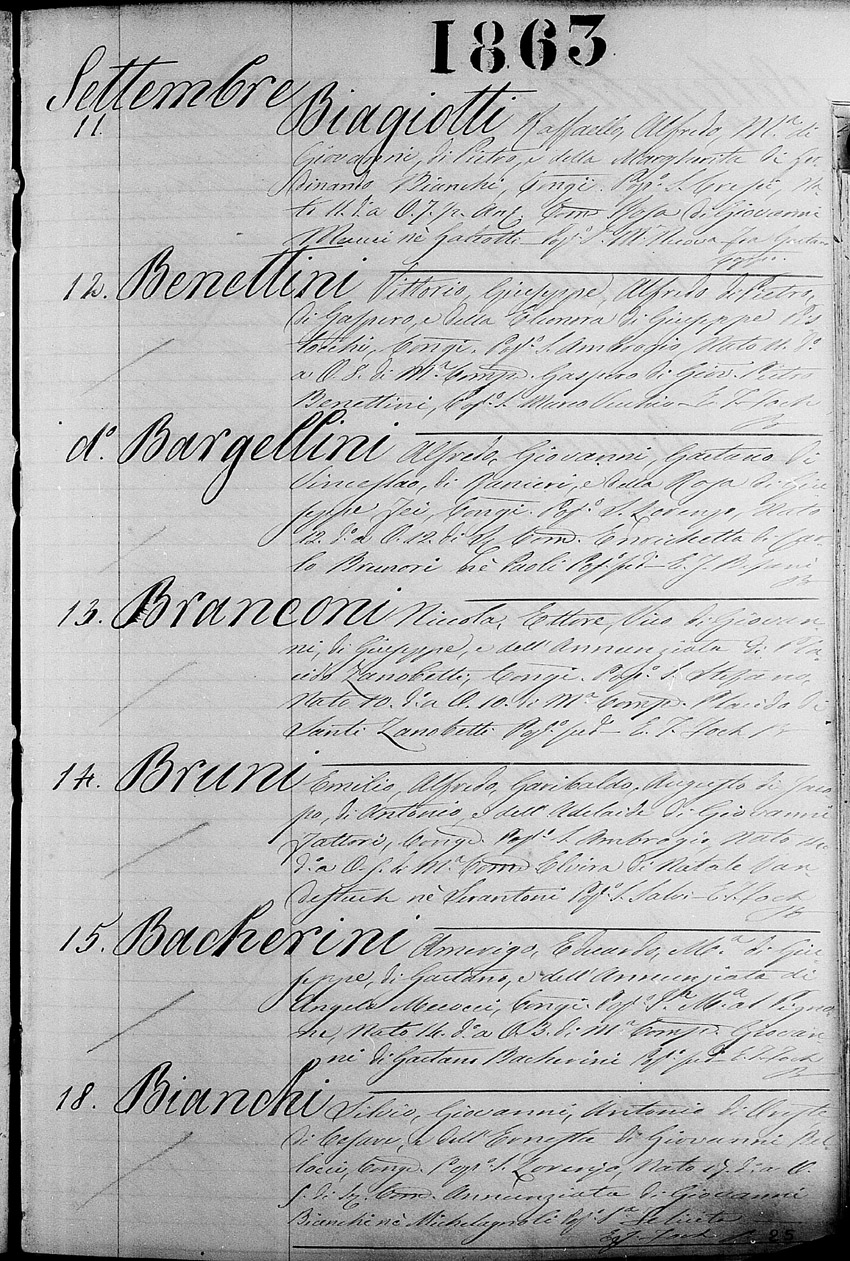 1863
Settembre
11. Biagiotti Raffaello, Alfredo, M.ª di
Giovanni, di Pietro, e della Margherita di Fer
dinando Bianchi, Congi. Pop.º S. Crespi, Na
to 11. d.º a O. 7. Com. Rosa di Giovanni
Mucci nè Galeotti Pop.º S. M.ª Nuova Gaetano
12. Benettini Vittorio, Giuseppe, Alfredo di Pietro,
di Gaspero, e della Eleonora di Giuseppe Pis
torchi, Congi. Pop.º S. Ambrogio, Nato 11. d.º
a O. 8. di M.ª Comp. Gaspero di Giov. Pietro
Benettini, Pop.º S. E. F. Foch
d.º Bargellini Alfredo, Giovanni, Gaetano di
di Ranieri, e della Rosa di Giu
seppe Fei, Congi. Pop.º S. Lorenzo, Nato
12. d.º a O. 12. di S. Com. Enrichetta di Car
lo Brunori nè Paoli Pop.º sed.º E. F.
13. Branconi Niccola, Ettore, Vico di Giovan
ni, di Giuseppe, e dell'Annunziata di Pla
cido Zanobetti, Congi. Pop.º S. Stefano,
Nato 10. d.º a O. 10. di M.ª Comp. Placido di
Santi Zanobetti Pop.º sed.º E. F. Foch
14. Bruni Emilio, Alfredo, Garibaldo, Augusto di Jaco
po, di Antonio, e dell'Adelaide di Giovanni
Fattori, Congi. Pop.º S. Ambrogio, Nato
d.º a O. 5. di M.ª Com. Elvira di Natale Van
nè Serantoni Pop.º S. Salvi E. F. Foch
15. Bacherini Amerigo, Eduardo, M.ª di Giu
seppe, di Gaetano, e dell'Annunziata di
Angelo Mecocci, Congi. Pop.º S.ª M.ª al Pigno
ne, Nato 14. d.º a O. 3. di M.ª Comp. Giovan
ni di Gaetano Bacherini Pop.º sed.º E. F. Foch
18. Bianchi Silvio, Giovanni, Antonio di Oreste
di Cesare, e dell'Ernesta di Giovanni Bel
lacci, Congi. Pop.º S. Lorenzo, Nato 17. d.º a O.
5. di S. Com. Annunziata di Giovanni
Bianchi nè Michelagnoli Pop.º S.ª Felicita
25